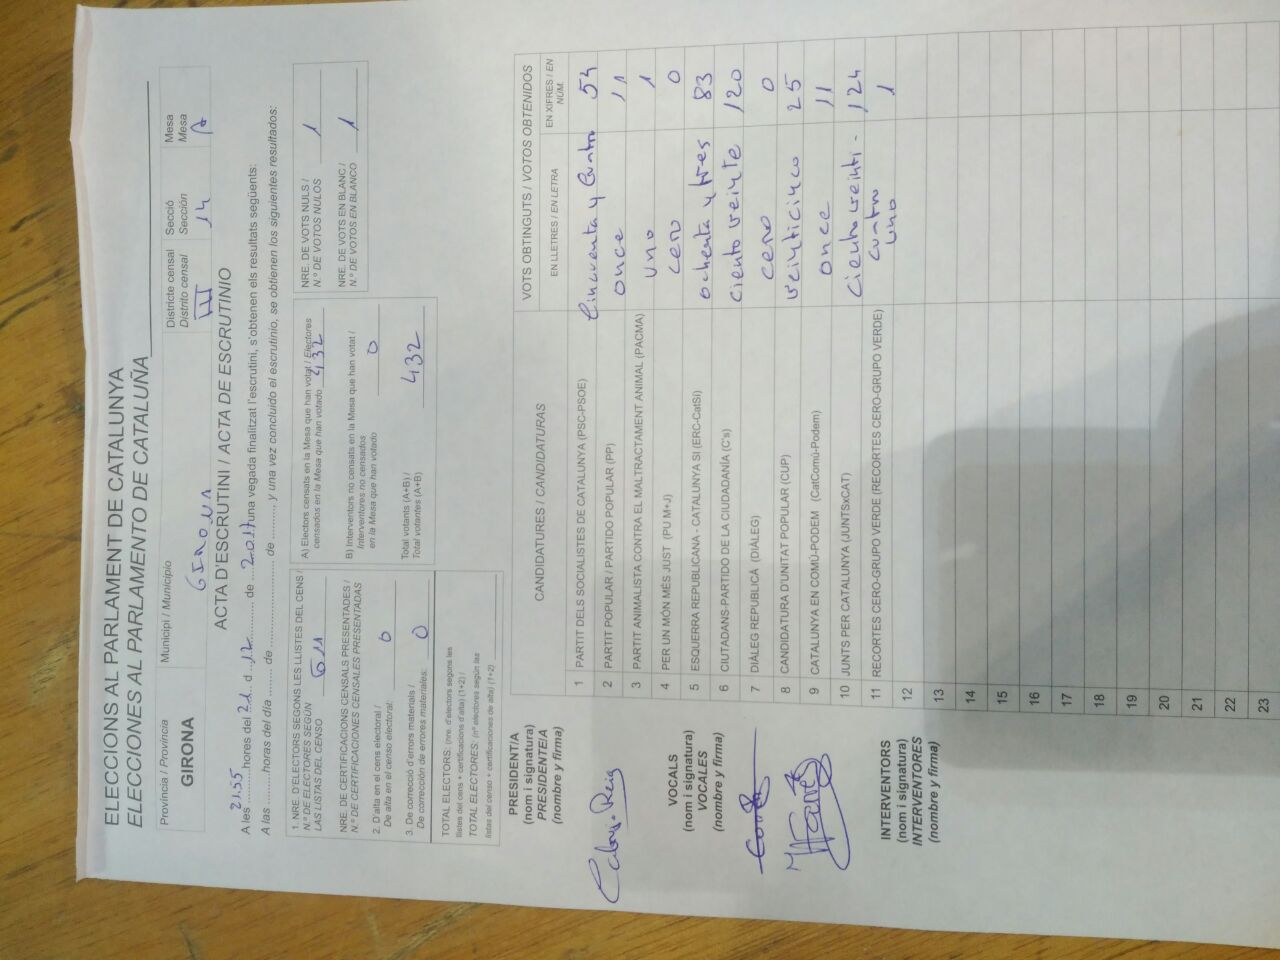 ELECCIONS AL PARLAMENT DE CATALUNYA
ELECCIONES AL PARLAMENTO DE CATALUÑA
Província / Provincia
GIRONA
Municipi / Municipio
GIRONA
Districte censal
Distrito censal
III
Secció
Sección
14
Mesa
Mesa
A
ACTA D'ESCRUTINI / ACTA DE ESCRUTINIO
A les 21.55 hores del 21 d 12 de 2017 una vegada finalitzat l'escrutini, s'obtenen els resultats següents:
A las ......... horas del día ........ de ........................ de ........., y una vez concluido el escrutinio, se obtienen los siguientes resultados:
1. NRE. D'ELECTORS SEGONS LES LLISTES DEL CENS /
N.º DE ELECTORES SEGÚN
LAS LISTAS DEL CENSO 611
NRE. DE CERTIFICACIONS CENSALS PRESENTADES /
N.º DE CERTIFICACIONES CENSALES PRESENTADAS
2. D'alta en el cens electoral /
De alta en el censo electoral: 0
3. De correcció d'errors materials /
De corrección de errores materiales: 0
TOTAL ELECTORS: (nre. d'electors segons les
llistes del cens + certificacions d'alta) (1+2) /
TOTAL ELECTORES: (nº electores según las
listas del censo + certificaciones de alta) (1+2)
A) Electors censats en la Mesa que han votat / Electores
censados en la Mesa que han votado 432
B) Interventors no censats en la Mesa que han votat /
Interventores no censados
en la Mesa que han votado 0
Total votants (A+B) /
Total votantes (A+B) 432
NRE. DE VOTS NULS /
N.º DE VOTOS NULOS 1
NRE. DE VOTS EN BLANC /
N.º DE VOTOS EN BLANCO 1
CANDIDATURES / CANDIDATURAS
VOTS OBTINGUTS / VOTOS OBTENIDOS
EN LLETRES / EN LETRA
EN XIFRES / EN NÚM.
1 PARTIT DELS SOCIALISTES DE CATALUNYA (PSC-PSOE) Cincuenta y Cuatro 54
2 PARTIT POPULAR / PARTIDO POPULAR (PP) once 11
3 PARTIT ANIMALISTA CONTRA EL MALTRACTAMENT ANIMAL (PACMA) uno 1
4 PER UN MÓN MÉS JUST (PU M+J) cero 0
5 ESQUERRA REPUBLICANA - CATALUNYA SI (ERC-CatSí) ochenta y tres 83
6 CIUTADANS-PARTIDO DE LA CIUDADANÍA (C's) ciento veinte 120
7 DIÀLEG REPUBLICÀ (DIÀLEG) cero 0
8 CANDIDATURA D'UNITAT POPULAR (CUP) veinticinco 25
9 CATALUNYA EN COMÚ-PODEM (CatComú-Podem) once 11
10 JUNTS PER CATALUNYA (JUNTSxCAT) Ciento veinti - cuatro 124
11 RECORTES CERO-GRUPO VERDE (RECORTES CERO-GRUPO VERDE) uno 1
12
13
14
15
16
17
18
19
20
21
22
23
PRESIDENT/A
(nom i signatura)
PRESIDENTE/A
(nombre y firma)
VOCALS
(nom i signatura)
VOCALES
(nombre y firma)
INTERVENTORS
(nom i signatura)
INTERVENTORES
(nombre y firma)